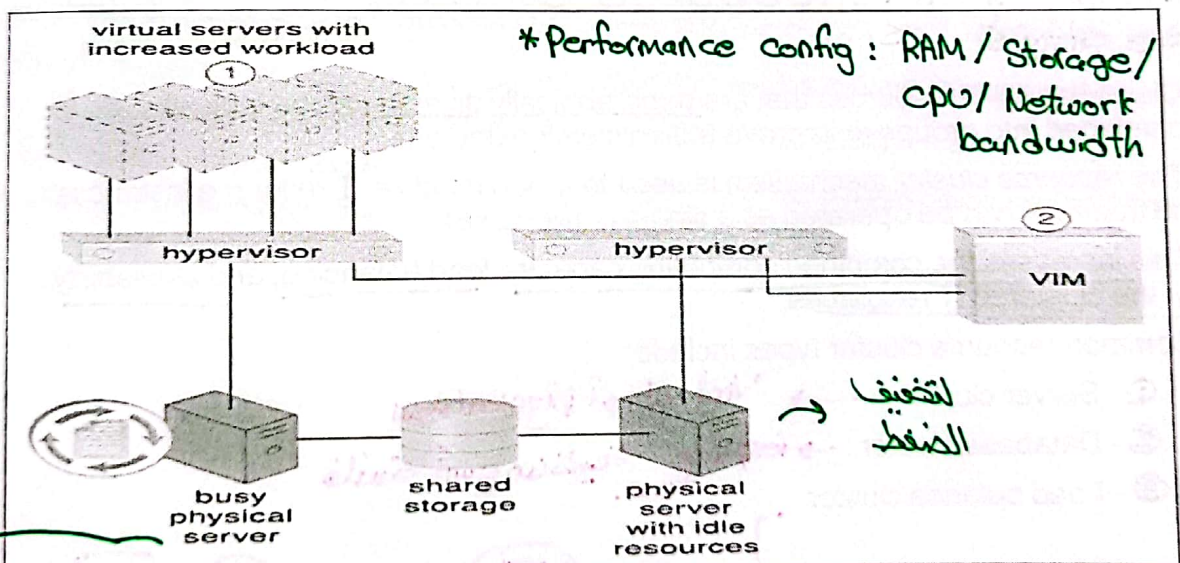 virtual servers with
increased workload
1
*Performance config: RAM / Storage /
CPU / Network
bandwidth
hypervisor
hypervisor
2
VIM
لتخفيف
الضغط
busy
physical
server
shared
storage
physical
server
with idle
resources